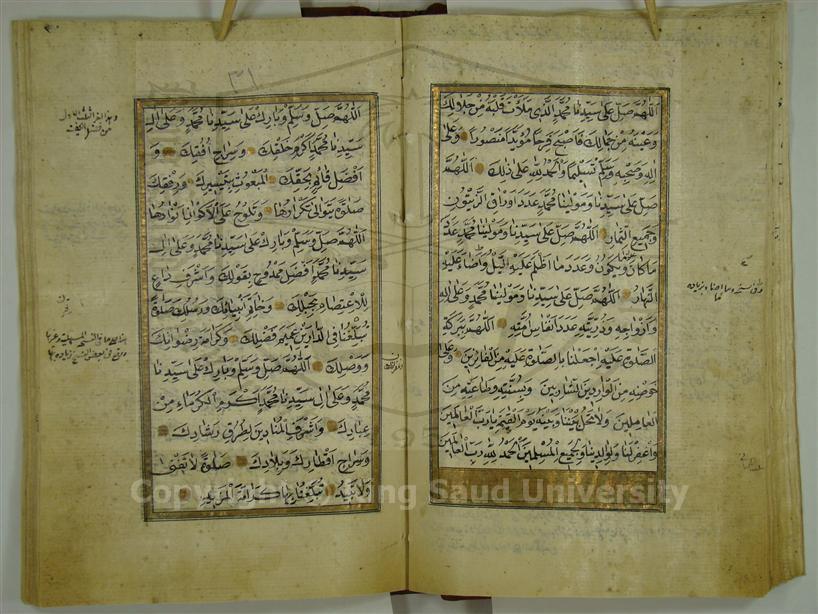 اللهم صل على سيدنا محمد الذي ملأت قلبه من جلالك
وعينه من جمالك فاصبح فرحا مؤيدا منصورا وعلى
اله وصحبه وسلم تسليما والحمد لله على ذلك اللهم
صل على سيدنا ومولينا محمد عدد اوراق الزيتون
وجميع الثمار اللهم صل على سيدنا ومولينا محمد عدد
ما كان وما يكون وعدد ما اظلم عليه اليل واضاء عليه
النهار اللهم صل على سيدنا ومولينا محمد وعلى اله
وازواجه وذريته عدد انفاس امته اللهم ببركة
الصلوة عليه اجعلنا بالصلوة عليه من الفائزين وعلى
حوضه من الواردين الشاربين وبسنته وطاعته من
العاملين ولا تحل بيننا وبينه يوم القيمة يا رب العالمين
واغفر لنا ولوالدينا ولجميع المسلمين الحمد لله رب العالمين
اللهم صل وسلم وبارك على سيدنا محمد وعلى ال
سيدنا محمد اكرم خلقك وسراج افقك و
افضل قائم بحقك المبعوث بتيسيرك ورفقك
صلوة يتوالى تكرارها وتلوح على الاكوان انوارها
اللهم صل وسلم وبارك على سيدنا محمد وعلى ال
سيدنا محمد افضل ممدوح بقولك واشرف داع
للاعتصام بحبلك وخاتم انبيائك ورسلك صلوة
تبلغنا في الدارين عميم فضلك وكرامة رضوانك
ووصلك اللهم صل وسلم وبارك على سيدنا
محمد وعلى ال سيدنا محمد اكرم الكرماء من
عبادك واشرف المنادين لطرق رشادك
وسراج اقطارك وبلادك صلوة لا تفنى
ولا تبيد تبلغنا بها كرامة المزيد
Copyright © King Saud University